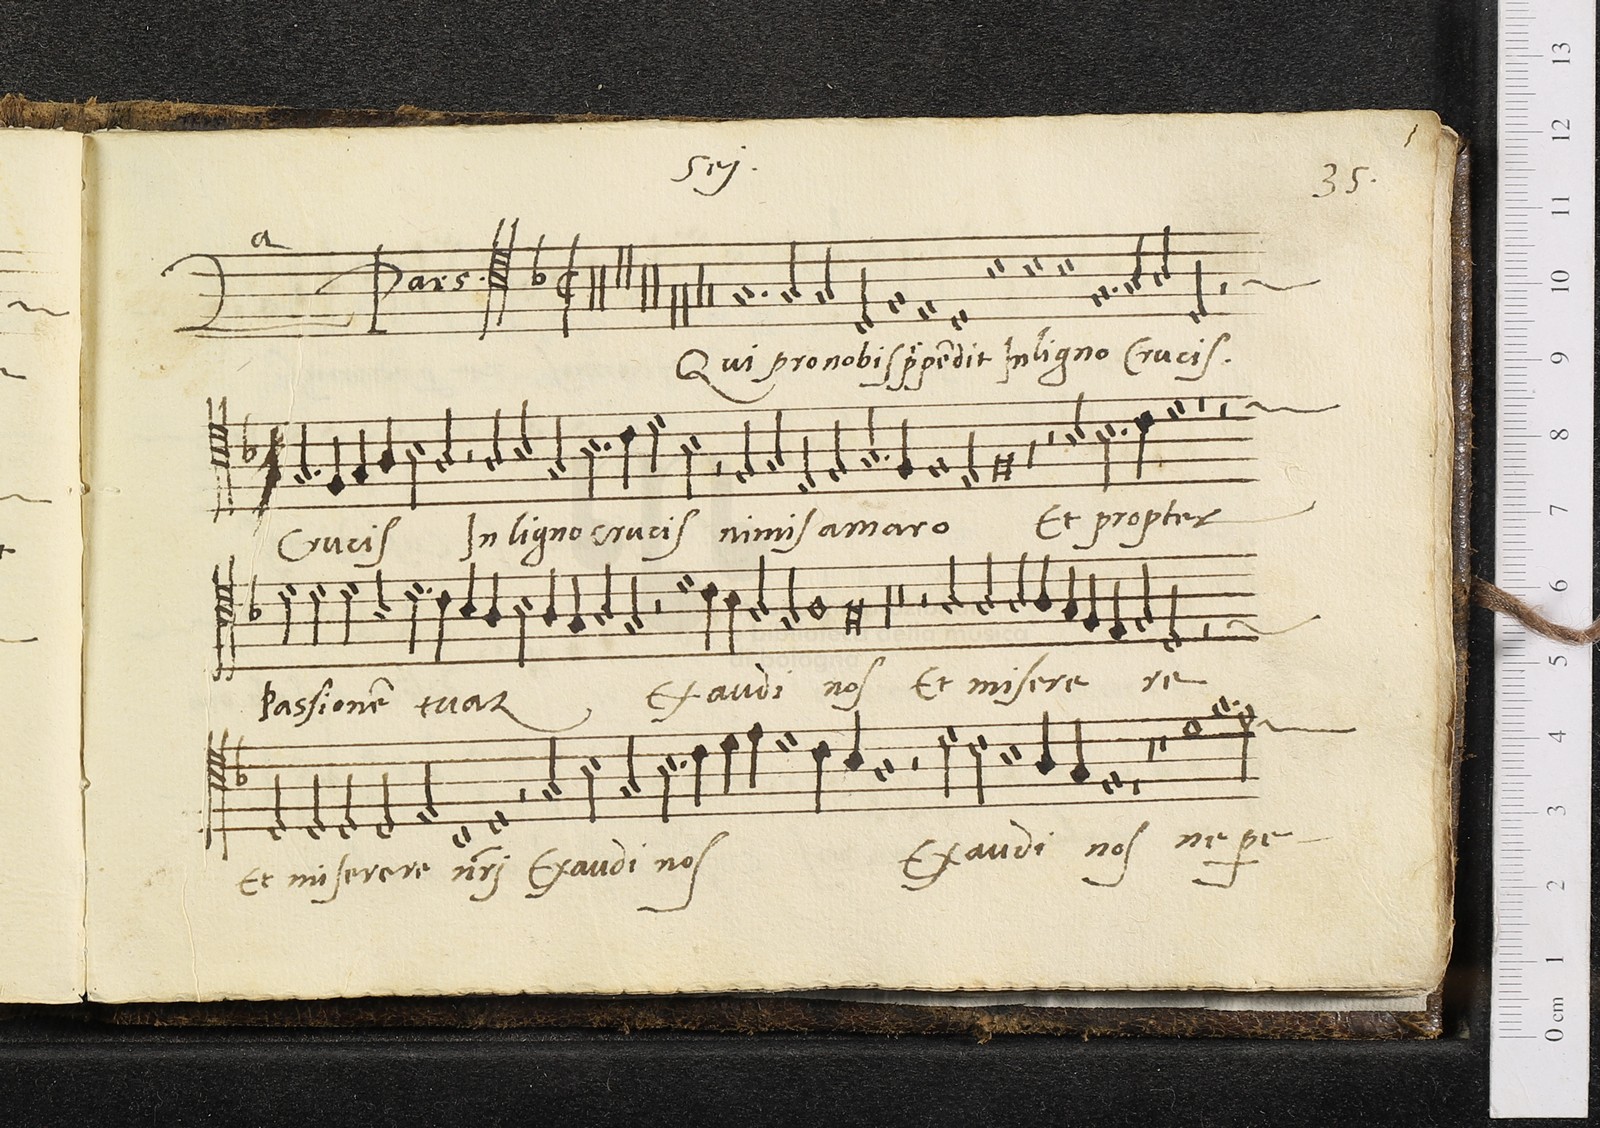 Sej.
35.
2a Pars.
Qui pro nobis ꝓpẽdit In ligno Crucis.
Crucis In ligno crucis nimis amaro Et propter
Passionẽ tuaz Exaudi nos Et misere re
Et miserere nr̃j Exaudi nos Exaudi nos ne ꝑe
biblioteca della musica
di bologna
13
12
11
10
9
8
7
6
5
4
3
2
1
0 cm